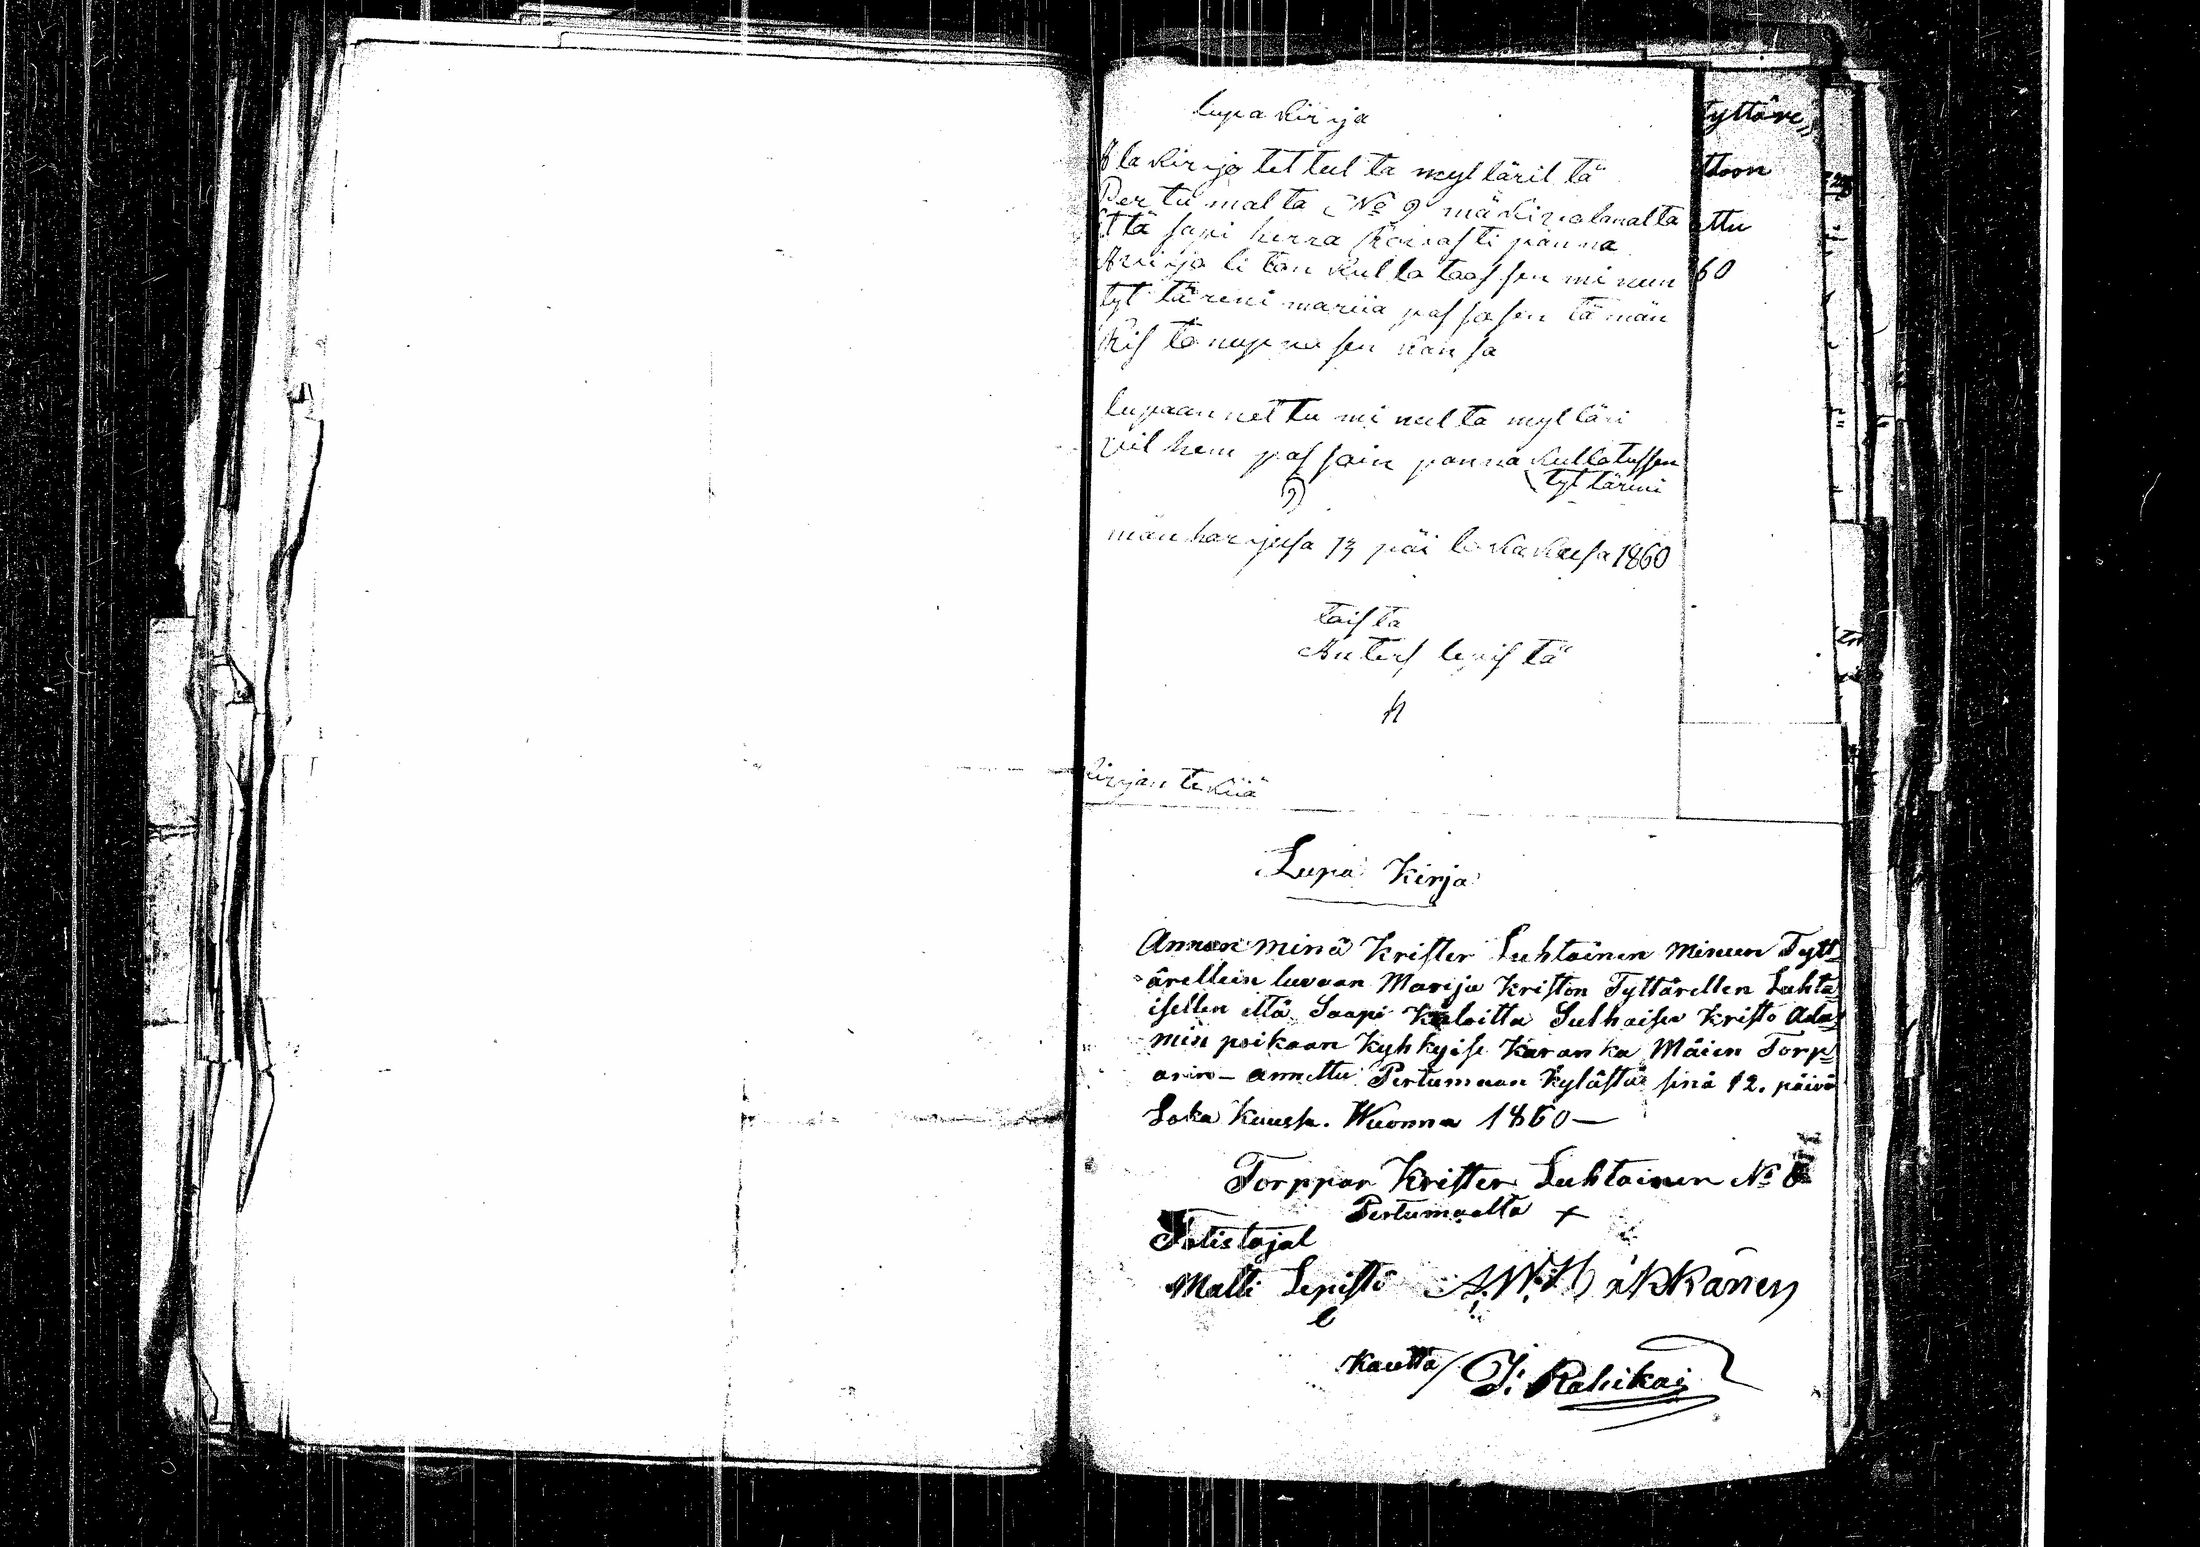 lupa kirija
Ala kirijo tet tul ta myl läril tä
Per tu mal ta No 9
Että sapi herra panna
Avi ijo li ton kul la taas sen mi nun
tyt tä reni mariia pas sosen tä män
Kris to sen kan sa
lupaan net tu mi nul ta myl läri
vil hem pas sain panna kullatussen
tyt täreni
män har ijusa 13 päi lo ka kuusa 1860
tois ta
Anters lepis tä
kirijan te kiiä
tyttäre,,
ttoon
ttu
60
Lupa Kirja
Annan minä Krister Luhtainen Minun Tytt=
=ärellein luvaan Marija Kriston Tyttärellen Luhta
isellen että Saapi Kuloitta Sulhaisen Kristo Ada=
min poikaan Kyhkyise Karan ka Mäien Torp=
arin – annettu Pertumaan Kylästä sinä 12. päivä
Loka Kuussa. Wuonna 1860 —
Torppar Krister Luhtainen No 8
Pertumaalta +
Totistajat
Matti Lepistö A. W. Häkkänen
Kautta / J. Rahikai